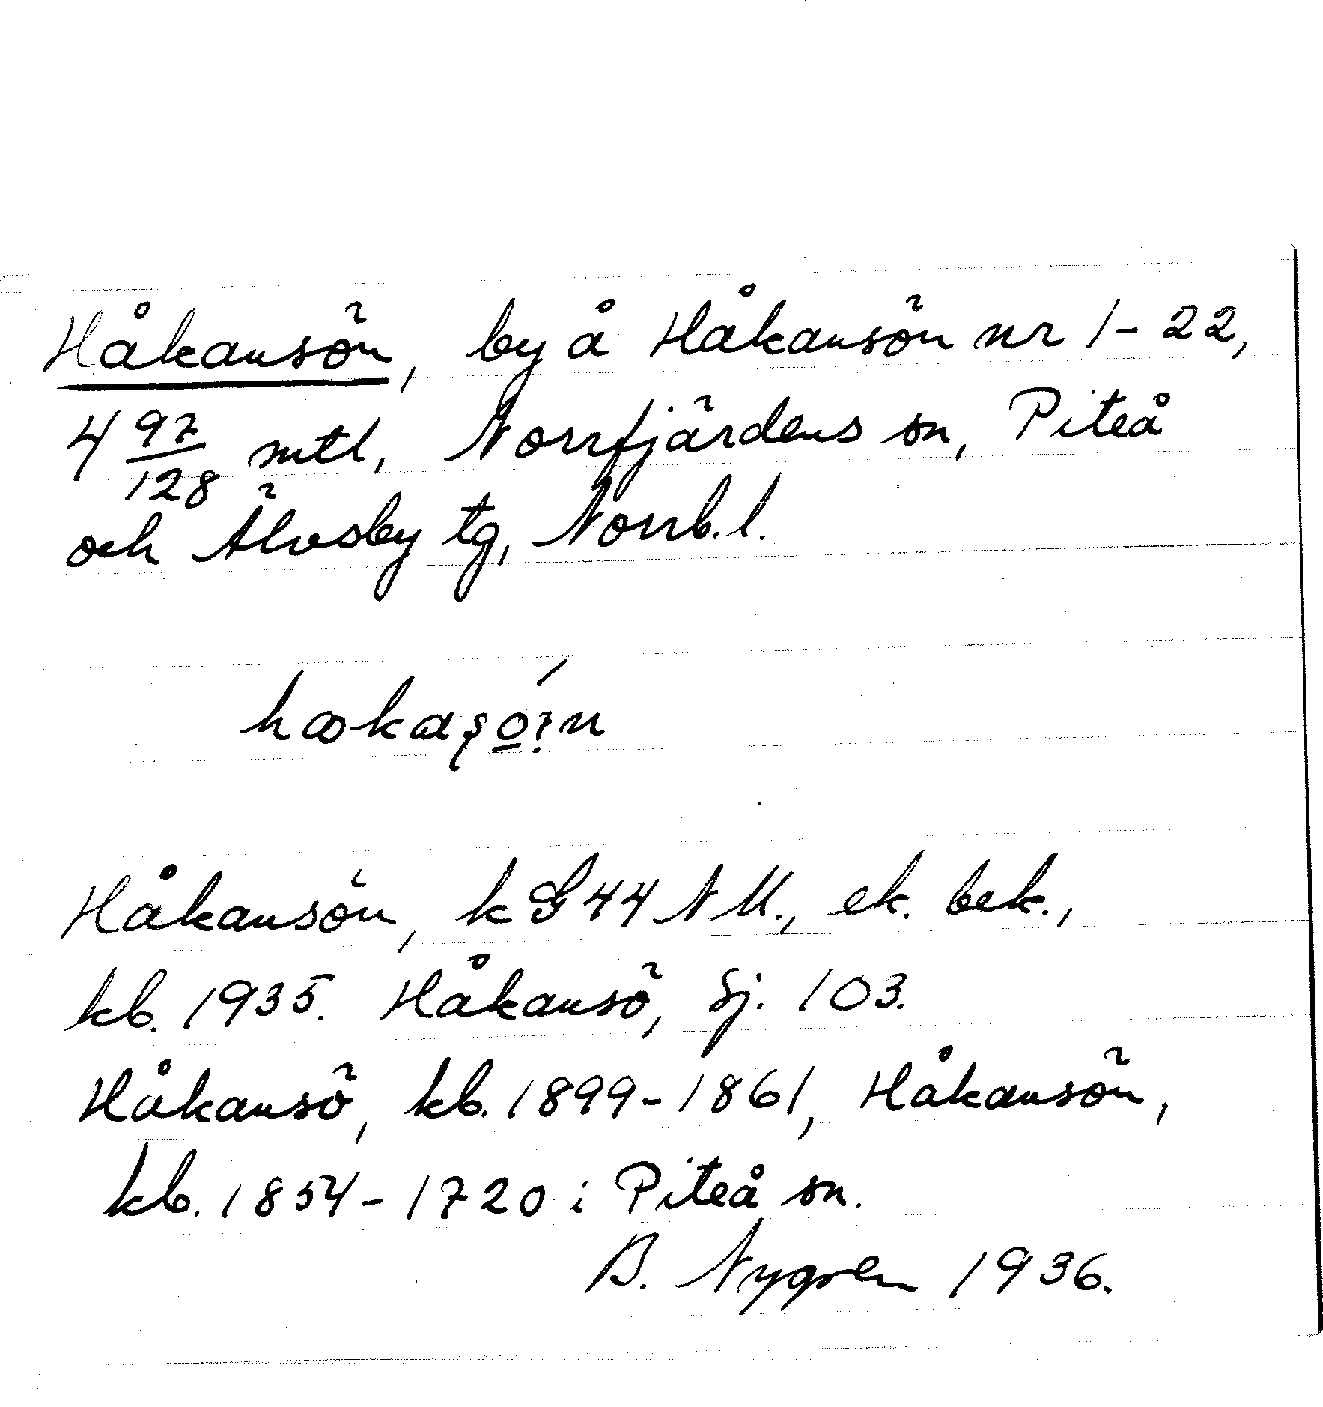 Håkansön, by å Håkansön nr 1-22,
4 97/128 mtl, Norrfjärdens sn, Piteå
och Älvsby tg, Norrb. l.
Håkansön, k G 44 NM., ek. bek.,
kb. 1935. Håkansö, Sj. 103.
Håkansö, kb. 1899-1861, Håkansön,
kb. 1854-1720 i Piteå sn.
B. Nygren 1936.